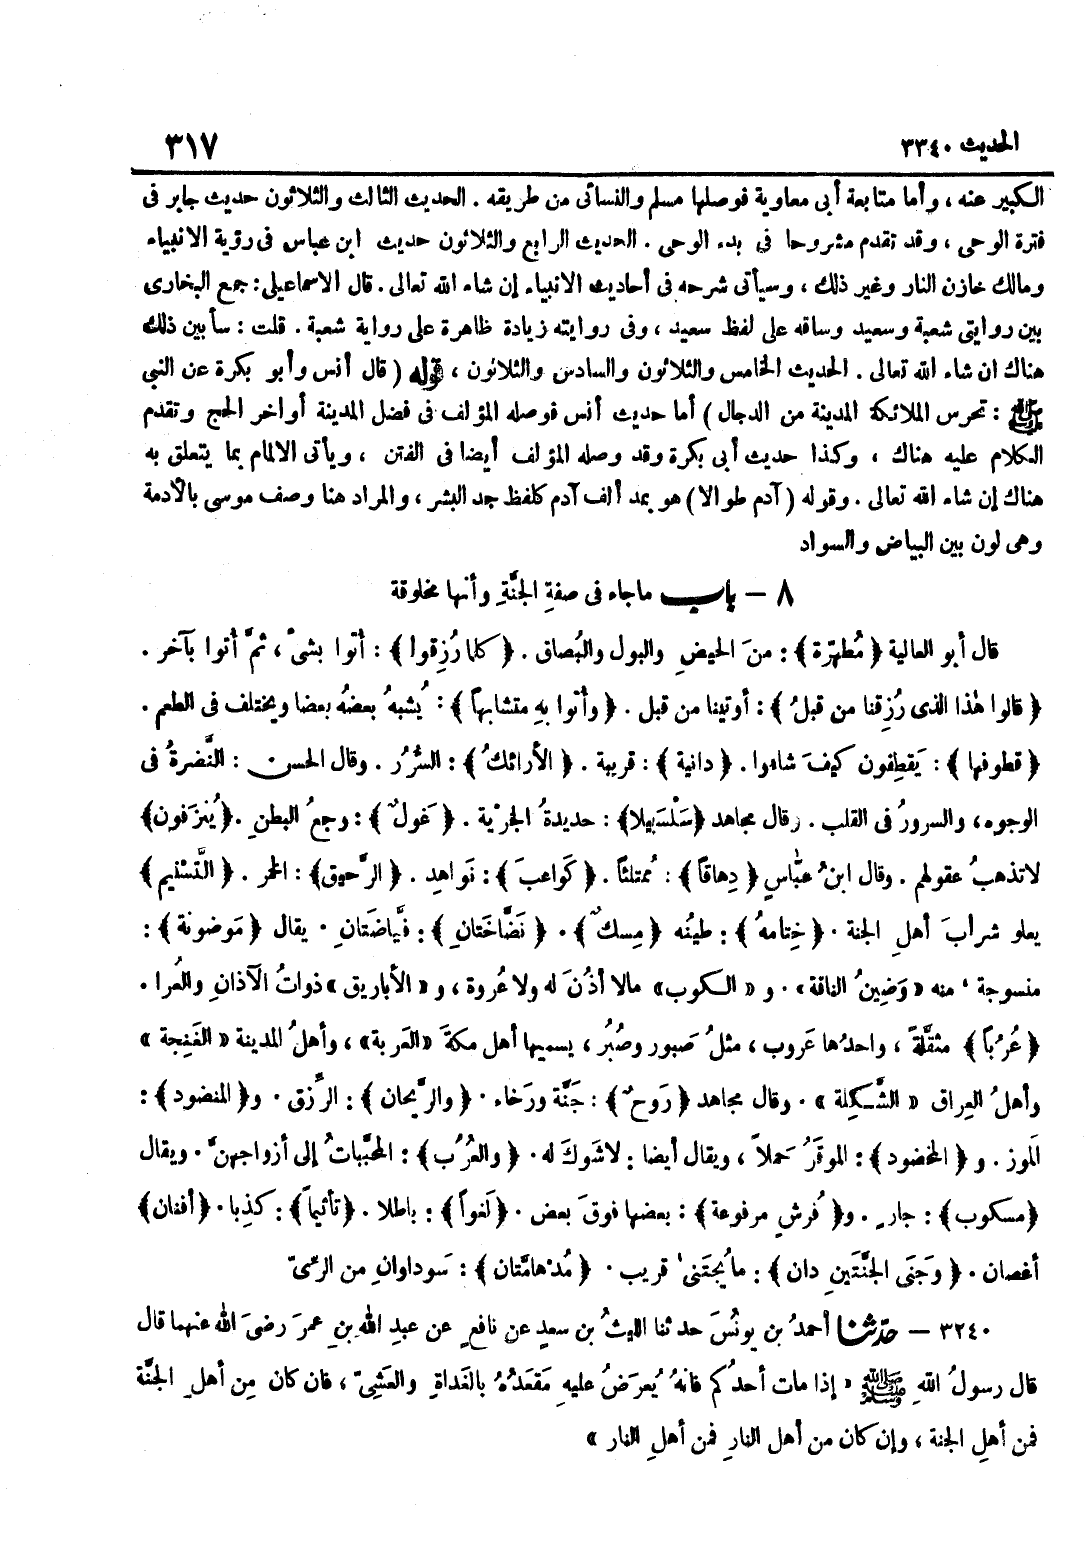 الحديث ٣٣٤٠ ٣١٧
الكبير عنه ، وأما متابعة أبى معاوية فوصلها مسلم والنسائى من طريقه . الحديث الثالث والثلاثون حديث جابر فى
فترة الوحى ، وقد تقدم مشروحا فى بدء الوحى . الحديث الرابع والثلاثون حديث ابن عباس فى رؤية الانبياء
ومالك خازن النار وغير ذلك ، وسيأتى شرحه فى أحاديث الانبياء إن شاء الله تعالى . قال الاسماعيلى : جمع البخارى
بين روايتى شعبة وسعيد وساقه على لفظ سعيد ، وفى روايته زيادة ظاهرة على رواية شعبة . قلت : سأبين ذلك
هناك ان شاء الله تعالى . الحديث الخامس والثلاثون والسادس والثلاثون ، قوله ( قال أنس وأبو بكرة عن النبي
ﷺ : تحرس الملائكة المدينة من الدجال ) أما حديث أنس فوصله المؤلف فى فضل المدينة أواخر الحج وتقدم
الكلام عليه هناك ، وكذا حديث أبى بكرة وقد وصله المؤلف أيضا فى الفتن ، ويأتى الالمام بما يتعلق به
هناك إن شاء الله تعالى . وقوله ( آدم طوالا ) هو بمد ألف آدم كلفظ جد البشر ، والمراد هنا وصف موسى بالأدمة
وهى لون بين البياض والسواد
٨ – باب ماجاء فى صفةِ الجنَّةِ وأنها مخلوقة
قال أبو العالية ﴿ مُطهَّرة ﴾ : منَ الحيضِ والبول والبُصاق . ﴿ كلما رُزِقوا ﴾ : أُتوا بشىءٍ ، ثمَّ أُتوا بآخر .
﴿ قالوا هٰذا الذى رُزِقنا من قبلُ ﴾ : أوتينا من قبل . ﴿ وأُتوا بهِ متشابهاً ﴾ : يُشبهُ بعضهُ بعضا ويختلف فى الطعم .
﴿ قطوفها ﴾ : يَقطِفون كيفَ شاءوا . ﴿ دانية ﴾ : قريبة . ﴿ الأرائكُ ﴾ : السُّرُر . وقال الحسن : النَّضرةُ فى
الوجوه ، والسرورُ فى القلب . وقال مجاهد ﴿سَلْسَبيلا﴾ : حديدةُ الجرْية . ﴿ غَولٌ ﴾ : وجعُ البطنِ . ﴿ يُنزَفون﴾
لاتذهبُ عقولهم . وقال ابنُ عبَّاسٍ ﴿ دِهاقاً ﴾ : مُمتلئاً . ﴿ كَواعبَ ﴾ : نَواهِد . ﴿ الرَّحيق﴾ : الخمر . ﴿ التَّسْنيم ﴾
يعلو شرابَ أهلِ الجنة . ﴿ خِتامهُ ﴾ : طينُه ﴿ مِسكٌ ﴾ . ﴿ نَضَّاخَتانِ ﴾ : فيَّاضَتانِ . يقال ﴿ مَوضونة ﴾ :
منسوجة ، منه « وَضِينُ الناقة » . و « الكوب » مالا أذُنَ له ولا عُروة ، و « الأباريق » ذواتُ الآذانِ والعُرا .
﴿ عُرُباً ﴾ مثقَّلةً ، واحدُها عَروب ، مثلُ صَبور وصُبُر ، يسميها أهل مكةَ «العَرِبة» ، وأهلُ المدينة « الغَنِجة »
وأهلُ العِراق « الشَّكِلة » . وقال مجاهد ﴿ رَوحٌ ﴾ : جَنَّة ورَخاء . ﴿ والرَّيحان ﴾ : الرِّزق . و﴿ المنضود ﴾ :
الموز . و ﴿ المخضود ﴾ : الموقَرُ حَملاً ، ويقال أيضا : لاشَوكَ له . ﴿ والعُرُب ﴾ : المحبَّباتُ إلى أزواجهنَّ . ويقال
﴿مسكوب﴾ : جارٍ . و﴿ فُرشٍ مرفوعة ﴾ : بعضها فوقَ بعض . ﴿ لَغواً ﴾ : باطلا . ﴿ تأثيماً ﴾ : كذِبا . ﴿ أفنان﴾
أغصان . ﴿ وَجَنَى الجنَّتَينِ دان ﴾ : مايُجتَنىٰ قريب . ﴿ مُدْهامَّتان ﴾ : سَوداوانِ من الرِّىّ
٣٢٤٠ – حدّثنا أحمدُ بن يونُسَ حدثنا الليثُ بن سعدٍ عن نافعٍ عن عبدِ اللهِ بنِ عمرَ رضىَ اللهُ عنهما قال
قال رسولُ اللهِ ﷺ « إذا مات أحدُكم فانهُ يُعرَضُ عليهِ مَقعَدُهُ بالغَداةِ والعَشِىّ ، فان كان مِن أهلِ الجنَّة
فمن أهلِ الجنة ، وإن كان من أهل النارِ فمن أهلِ النار »